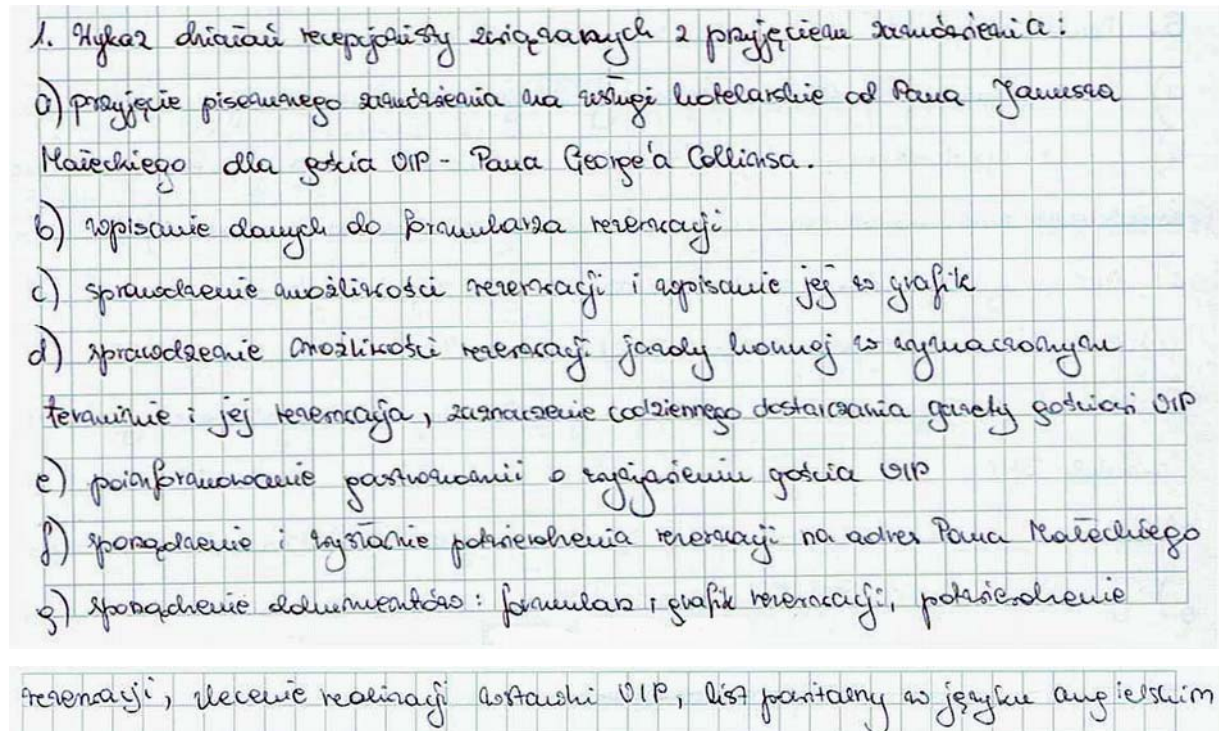 1. Wykaz działań recepcjonisty związanych z przyjęciem zamówienia:
a) przyjęcie pisemnego zamówienia na usługi hotelarskie od Pana Janusza
Małeckiego dla gościa VIP - Pana George'a Collinsa.
b) wpisanie danych do formularza rezerwacji
c) sprawdzenie możliwości rezerwacji i wpisanie jej w grafik
d) sprawdzenie możliwości rezerwacji jazdy konnej w wyznaczonym
terminie i jej rezerwacja, zaznaczenie codziennego dostarczania gazety gościowi VIP
e) poinformowanie gastronomii o życzeniu gościa VIP
f) sporządzenie i wysłanie potwierdzenia rezerwacji na adres Pana Małeckiego
g) sporządzenie dokumentów: formularz i grafik rezerwacji, potwierdzenie
rezerwacji, zlecenie realizacji wstawki VIP, list powitalny w języku angielskim